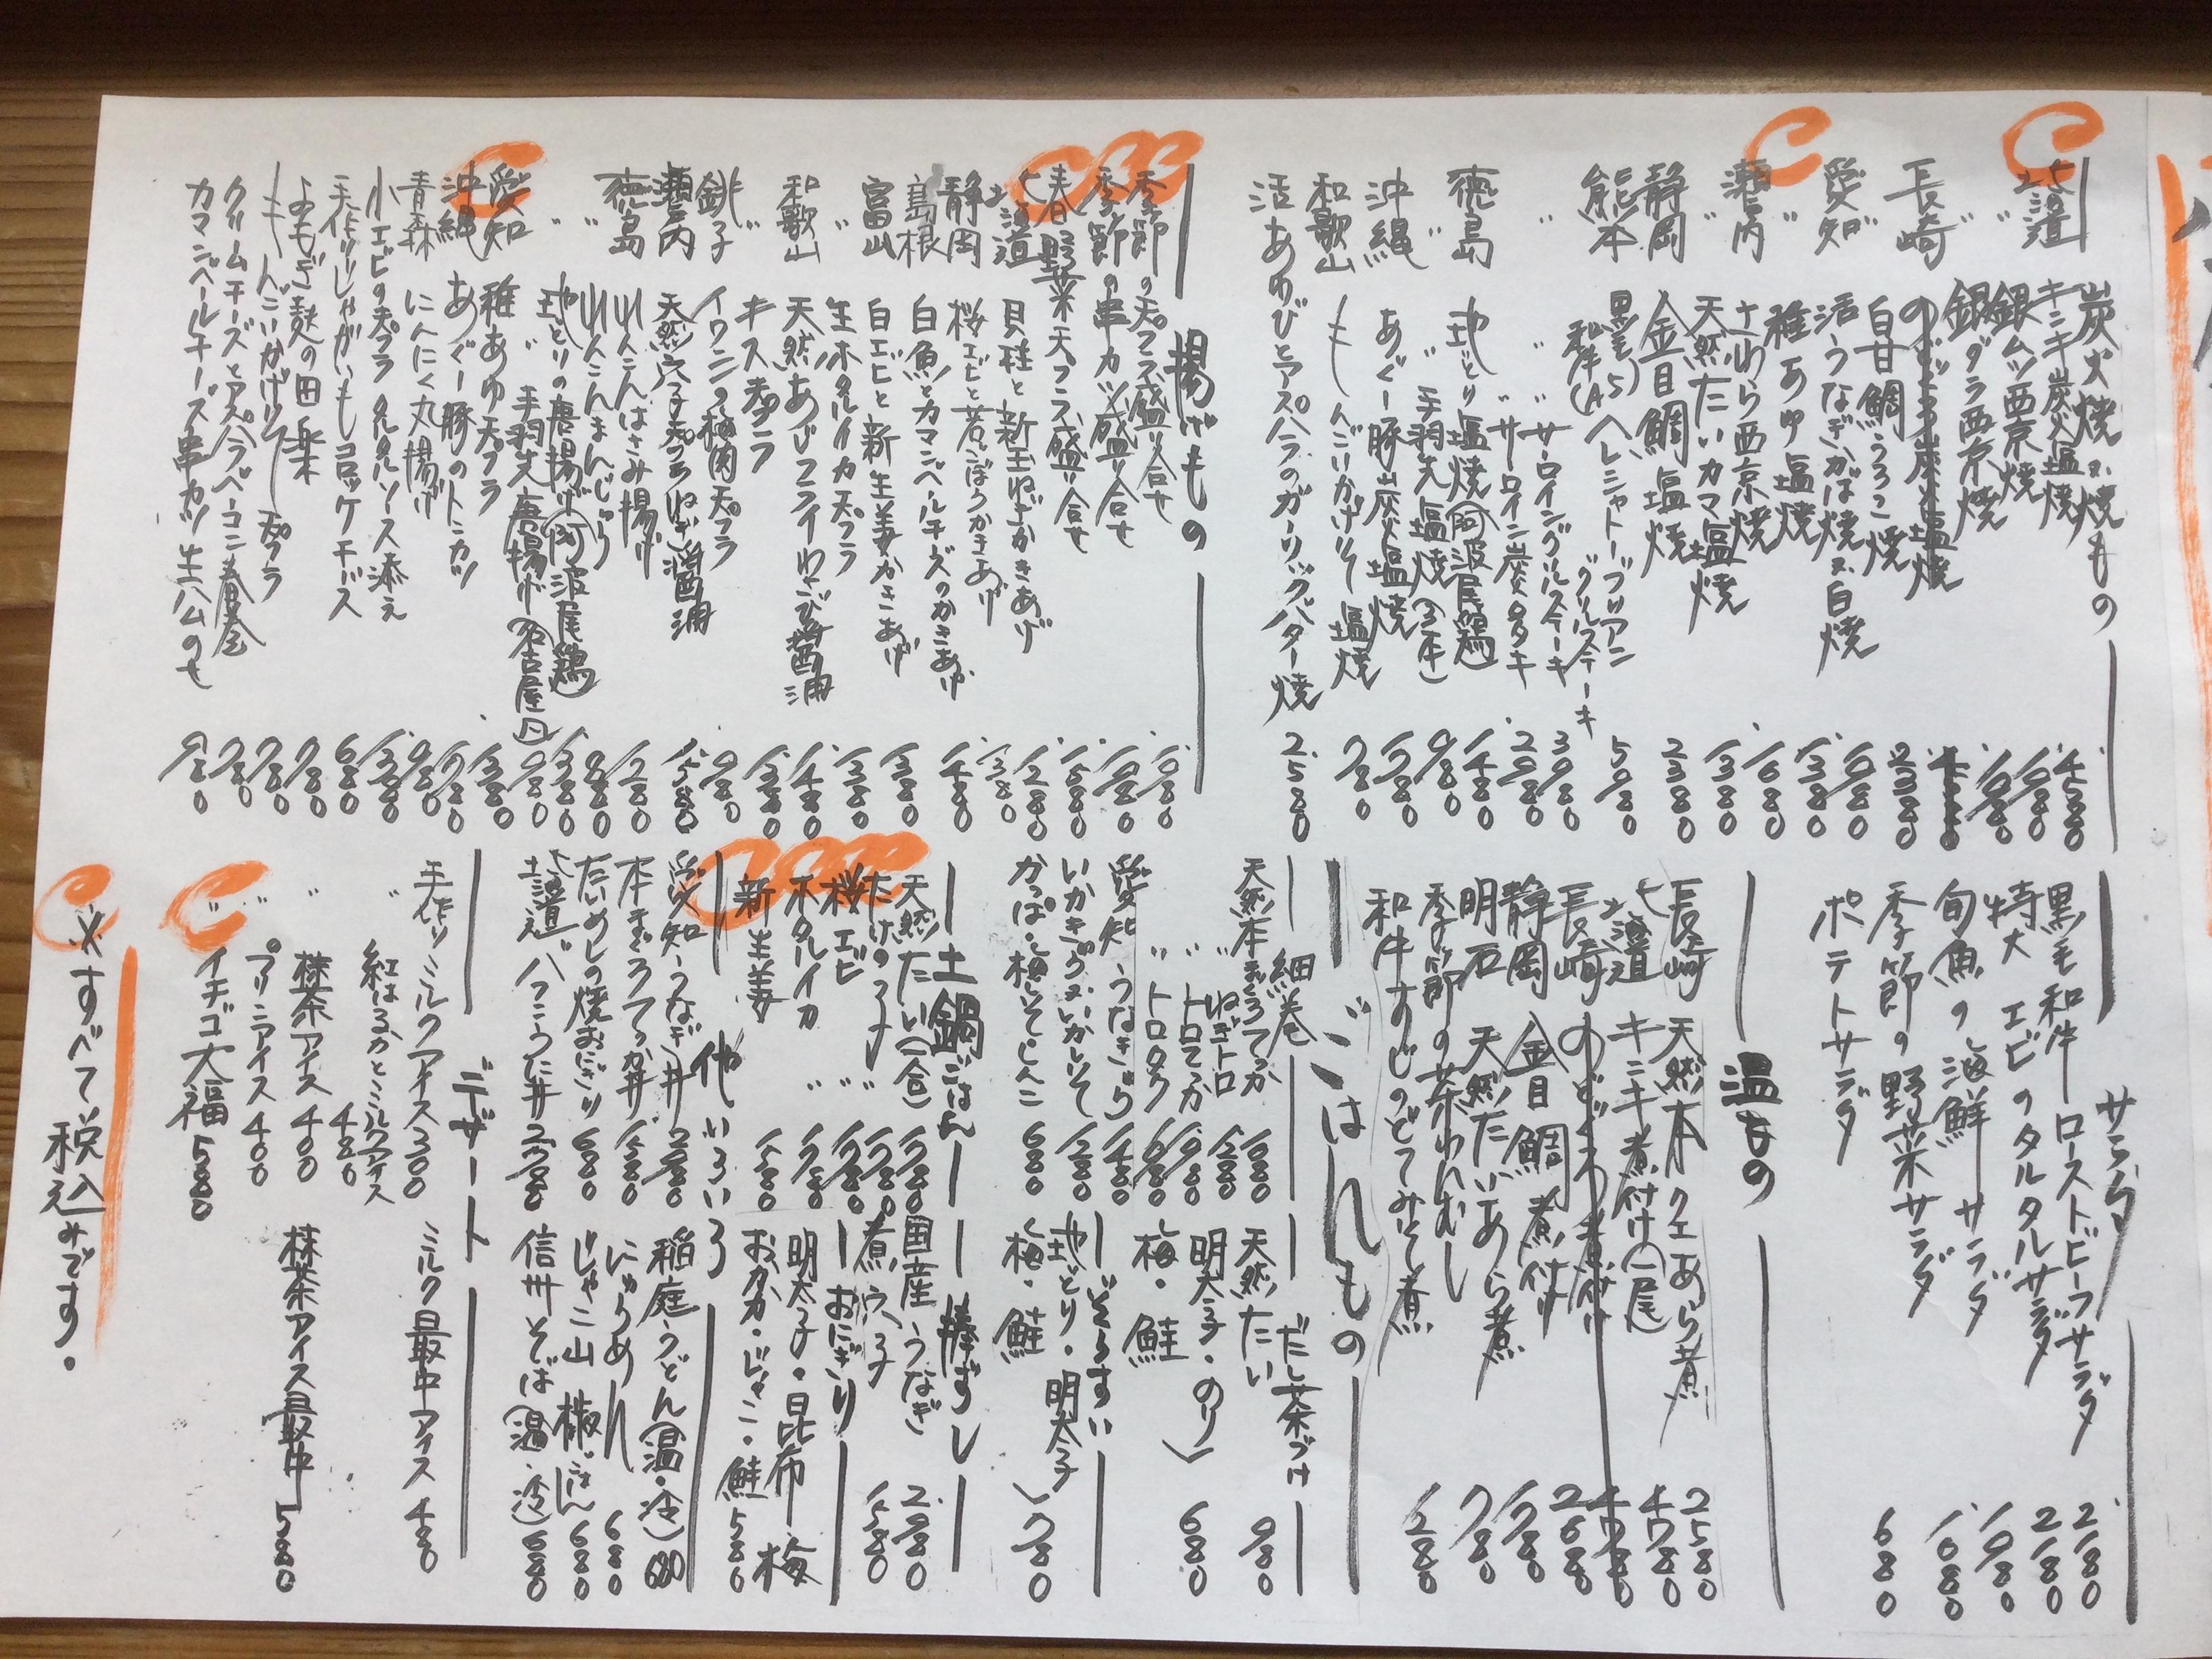 炭火焼か焼もの
北海道 キンキ炭火塩焼 4580
〃 銀ムツ西京焼 1980
銀ダラ西京焼 1980
長崎 のどぐろ炭火塩焼
〃 白甘鯛うろこ焼 2380
愛知 活うなぎかば焼又は白焼
〃 稚あゆ塩焼 1380
さわら西京焼 1680
瀬戸内 天然たいカマ塩焼 1380
静岡 金目鯛塩焼 2380
熊本 黒毛和牛(A5)ヘレシャトーブリアングリルステーキ 5980
〃 〃 サーロイングリルステーキ 3980
〃 サーロイン炭火タタキ 2980
徳島 地どり塩焼(阿波尾鶏) 1480
〃 〃 手羽先塩焼(3本) 980
沖縄 あぐー豚炭火塩焼 1780
和歌山 しもんごいかげそ塩焼 780
活あわびとアスパラのガーリックバター焼 2580
揚げもの
季節の天プラ盛り合せ 1980
季節の串カツ盛り合せ 1980
春野菜天プラ盛り合せ 1580
北海道 貝柱と新玉ねぎかきあげ 1280
静岡 桜エビと若ごぼうかきあげ 1380
島根 白魚とカマンベールチーズのかきあげ 1480
富山 白エビと新生姜かきあげ 1380
〃 生ホタルイカ天プラ 1380
和歌山 天然あじフライわさび醤油 1480
〃 キス天プラ 1380
銚子 イワシの梅肉天プラ 980
瀬戸内 天然穴子天プラねぎ醤油 1580
徳島 れんこんはさみ揚げ 1280
れんこんまんじゅう 880
〃 地どりの唐揚げ(阿波尾鶏) 1380
〃 〃 手羽先唐揚げ(名古屋風) 980
愛知 稚あゆ天プラ 1380
沖縄 あぐー豚のトンカツ 1780
青森 にんにく丸揚げ 980
小エビの天プラ タルタルソース添え 1380
手作りじゃがいもコロッケチーズ 680
よもぎ麩の田楽 780
しもんごいかげそ天プラ 780
クリームチーズとアスパラベーコン春巻 780
カマンベールチーズ串カツ生ハムのせ 980
サラダ
黒毛和牛ローストビーフサラダ 2180
特大エビのタルタルサラダ 2180
旬魚の海鮮サラダ 1980
季節の野菜サラダ 1080
ポテトサラダ 680
温もの
長崎 天然本クエあら煮 2580
北海道 キンキ煮付け(一尾) 4780
長崎 のどぐろ煮付け
静岡 金目鯛煮付け 2680
明石 天然たいあら煮 1780
季節の茶わんむし 780
和牛すじのどてみそ煮 1280
ごはんもの
細巻
天然本まぐろてっか 1680
〃 ねぎトロ 1280
〃 トロてっか 1980
〃 トロタク 1680
愛知 うなきゅう 1480
いかきゅう又はいかしそ 1280
かっぱ・梅しそ・しんこ 680
だし茶づけ
天然たい 980
明太子・のり
梅・鮭 680
ぞうすい
地どり・明太子
梅・鮭 780
土鍋ごはん
天然たい(一合) 1780
たけのこ 〃 1780
桜エビ 〃 1780
ホタルイカ 〃 1780
新生姜 〃 1580
棒ずし
国産うなぎ 2980
煮穴子 1580
おにぎり
明太子・昆布 梅
おかか・じゃこ・鮭 580
他いろいろ
愛知 うなぎ丼 2980
本まぐろてっか丼 1580
たいめしの焼おにぎり 680
北海道 いくらうに丼 2780
稲庭うどん(温・冷) 680
にゅうめん 680
じゃこ山椒ごはん 680
信州そば(温・冷) 680
デザート
手作りミルクアイス 300
〃 紅はるかとミルクアイス 480
〃 抹茶アイス 400
〃 プリンアイス 400
〃 イチゴ大福 580
ミルク最中アイス 480
抹茶アイス最中 580
※すべて税込みです。